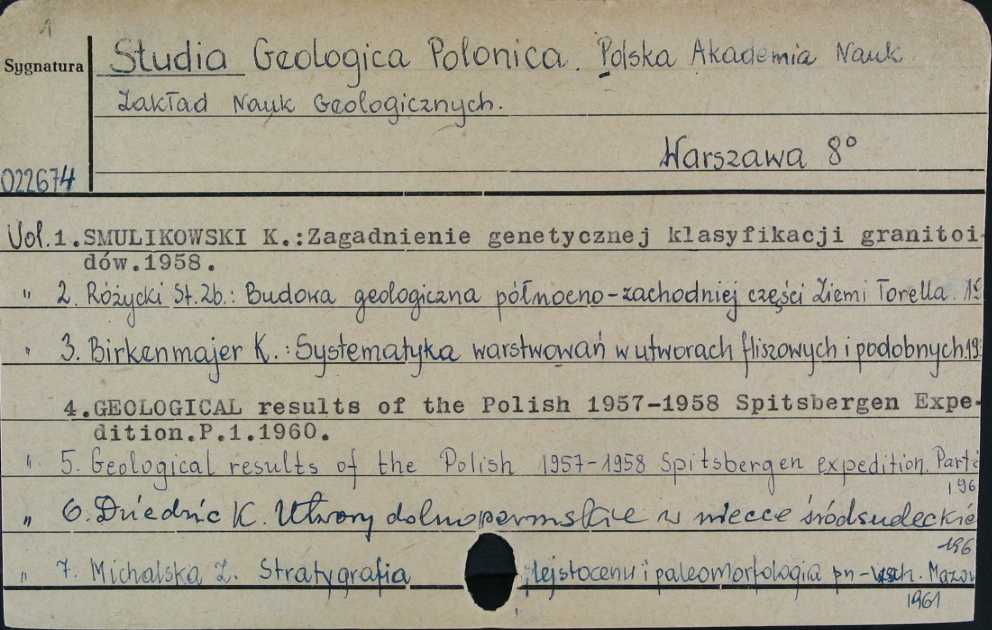 1
Studia Geologica Polonica. Polska Akademia Nauk.
Sygnatura
Zakład Nauk Geologicznych.
Warszawa 8°
022674
Vol.1.SMULIKOWSKI K.:Zagadnienie genetycznej klasyfikacji granitoi-
dów.1958.
" 2. Różycki St.Zb.: Budowa geologiczna północno-zachodniej części Ziemi Torella. 19
" 3. Birkenmajer K.: Systematyka warstwowań w utworach fliszowych i podobnych.19
4.GEOLOGICAL results of the Polish 1957-1958 Spitsbergen Expe-
dition.P.1.1960.
" 5. Geological results of the Polish 1957-1958 Spitsbergen expedition. Part
196
" 6. Dziedzic K. Utwory dolnopermskie w niecce śródsudeckie
196
" 7. Michalska Z. Stratygrafia plejstocenu i paleomorfologia pn-wsch. Mazow
1961